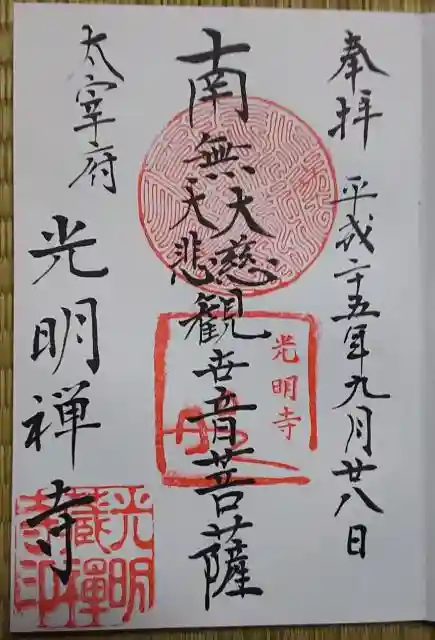 奉拝
平成二十五年九月廿八日
南無大慈大悲觀世音菩薩
光明寺
太宰府
光明禅寺